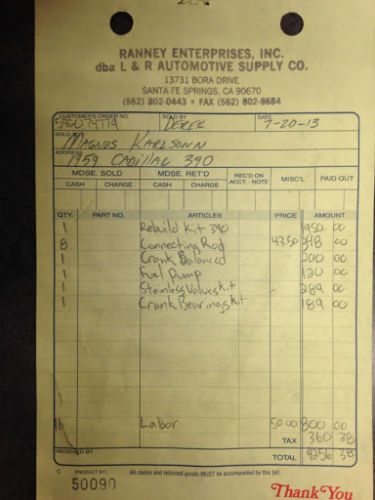 RANNEY ENTERPRISES, INC.
dba L & R AUTOMOTIVE SUPPLY CO.
13731 BORA DRIVE
SANTA FE SPRINGS, CA 90670
(562) 802-0443 • FAX (562) 802-8684
CUSTOMER'S ORDER NO. SOLD BY DATE
DEREK 7-20-13
SOLD TO
MAGNUS KARLSONN
ADDRESS
1959 CADILLAC 390
MDSE. SOLD MDSE. RET'D REC'D ON ACCT. - NOTE MISC'L PAID OUT
CASH CHARGE CASH CHARGE
QTY. PART NO. ARTICLES PRICE AMOUNT
1 Rebuild Kit 390 1950 00
8 Connecting Rod 43.50 348 00
1 Crank Balanced 200 00
1 Fuel Pump 120 00
1 Stainless Valves Kit 289 00
1 Crank Bearings Kit 189 00
16 Labor 50.00 800 00
TAX 360 38
RECEIVED BY
TOTAL 4256 38
PRODUCT 611 All claims and returned goods MUST be accompanied by this bill.
50090 Thank You